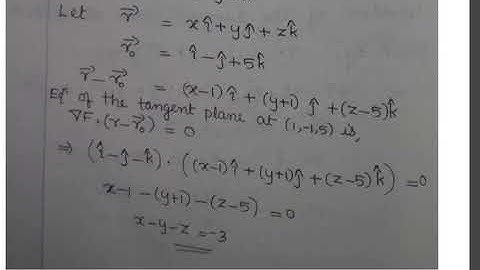 Let r⃗ = xî+yĵ+zk̂
r⃗₀ = î-ĵ+5k̂
r⃗-r⃗₀ = (x-1)î+(y+1)ĵ+(z-5)k̂
Eqⁿ of the tangent plane at (1,-1,5) is,
∇F·(r-r⃗₀) = 0
⇒ (î-ĵ-k̂)·((x-1)î+(y+1)ĵ+(z-5)k̂) =0
x-1-(y+1)-(z-5) =0
x-y-z=-3